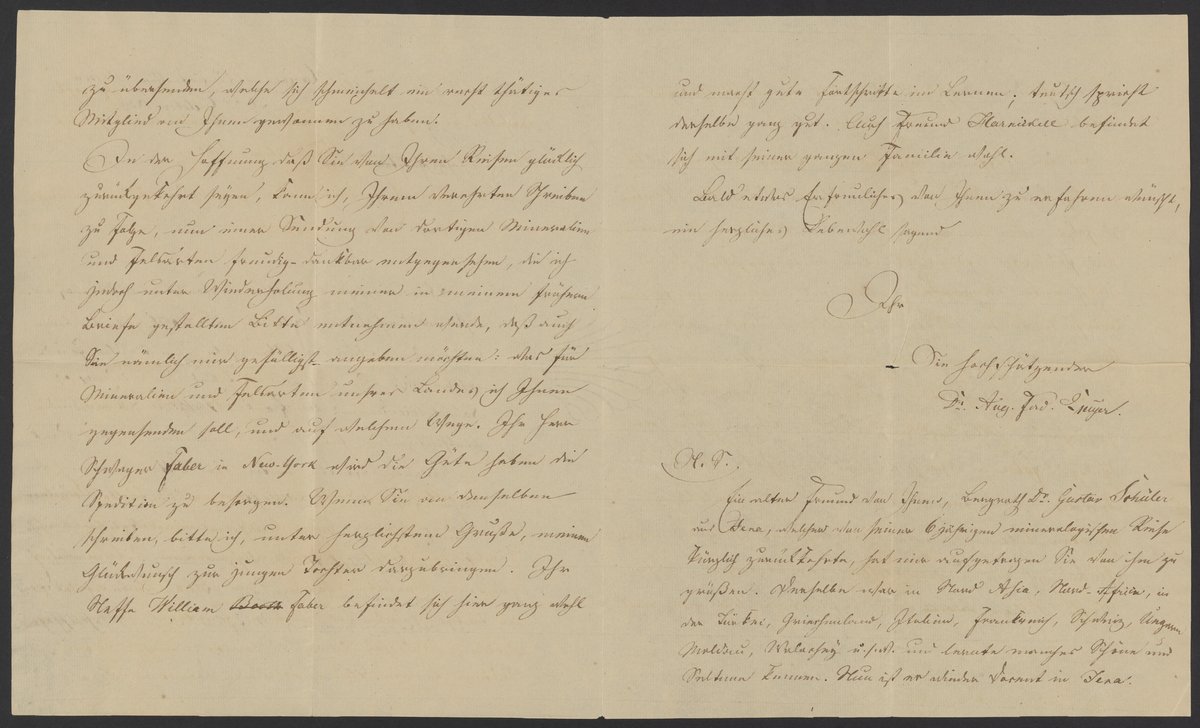 zu übersenden, welche sich schmeichelt ein recht thätiges
Mitglied an Ihnen gewonnen zu haben.
In der Hoffnung daß Sie von Ihren Reisen glücklich
zurückgekehrt seyen, kann ich, Ihrem verehrten Schreiben
zu Folge, nun einer Sendung von dortigen Mineralien
und Felsarten freudig-dankbar entgegensehen, die ich
jedoch unter Wiederholung meiner in meinem frühern
Briefe gestellten Bitte entnehmen werde, daß auch
Sie nämlich mir gefälligst angeben möchten: was für
Mineralien und Felsarten unsres Landes ich Ihnen
gegensenden soll, und auf welchem Wege. Ihr Herr
Schwager Faber in New-York wird die Güte haben die
Spedition zu besorgen. Wenn Sie an denselben
schreiben, bitte ich, unter herzlichstem Gruße, meinen
Glückwunsch zur jungen Tochter darzubringen. Ihr
Neffe William Faber befindet sich hier ganz wohl
und macht gute Fortschritte im Lernen; deutsch spricht
derselbe ganz gut. Auch Freund Harnickell befindet
sich mit seiner ganzen Familie wohl.
Bald etwas Erfreuliches von Ihnen zu erfahren wünscht,
ein herzliches Lebewohl sagend
Ihr
Sie hochschätzender
Dr. Aug. Fad.
N. S.
Ein alter Freund von Ihnen, Bergrath Dr. Gustav Schüler
aus Jena, welcher von seiner 6 jährigen mineralogischen Reise
kürzlich zurückkehrte, hat mir aufgetragen Sie von ihm zu
grüßen. Derselbe war in Nord Asia, Nord-Africa, in
der Türkei, Griechenland, Italien, Frankreich, Schweiz, Ungarn
Moldau, Walachey u.s.w. und lernte manches Schöne und
Seltene kennen. Nun ist er wieder Docent in Jena.